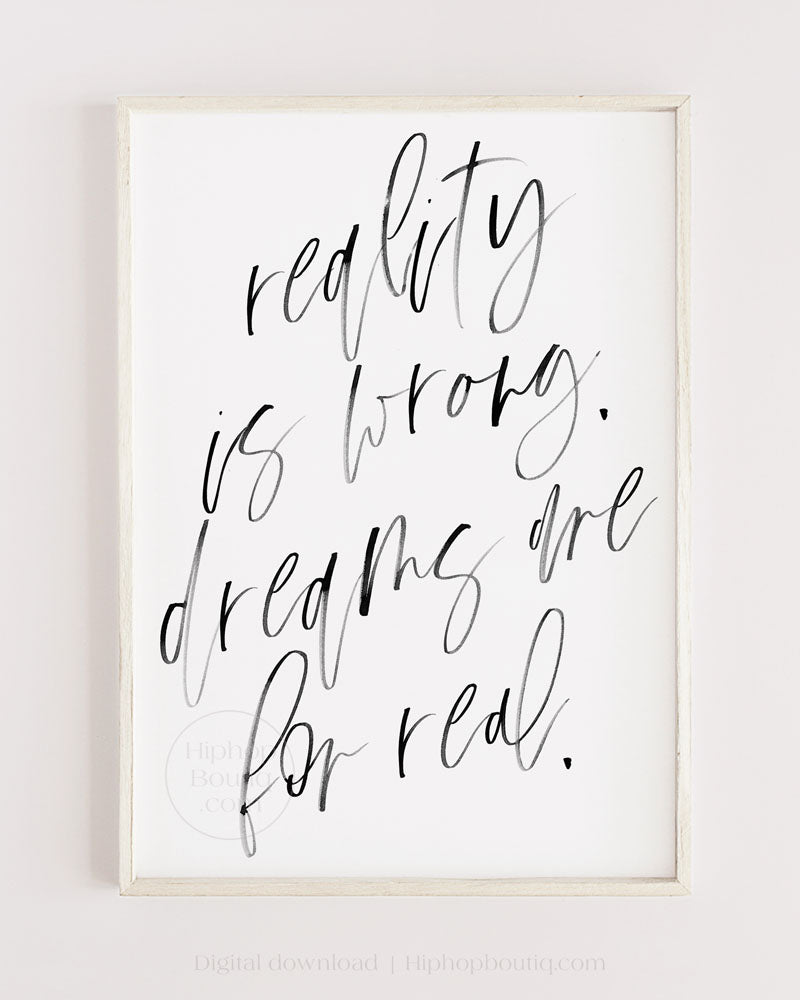 reality
is wrong.
dreams are
for real.
Hiphop
Boutiq
.com
Digital download | Hiphopboutiq.com